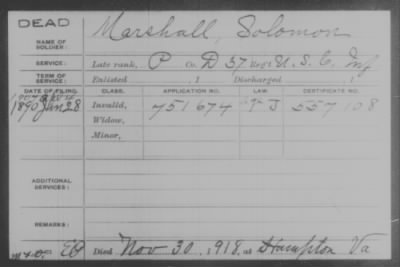 DEAD
NAME OF SOLDIER: Marshall, Solomon
SERVICE: Late rank, P Co. D 37 Reg't U.S.C. Inf
TERM OF SERVICE: Enlisted , 1 Discharged , 1
DATE OF FILING. CLASS. APPLICATION NO. LAW. CERTIFICATE NO.
1890 Jun 28 Invalid, 751674 J 557108
Widow,
Minor,
ADDITIONAL SERVICES:
REMARKS:
Died Nov 30, 1918, at Hampton Va